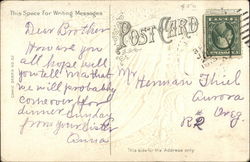 This Space For Writing Messages
POST CARD
Dear Brother
How are you
all hope well
you all
we will probably
come over for
dinner Sunday
from your Sister
Anna
Mr Herman Thiel
Aurora
Oreg.
R2
This side for the Address only